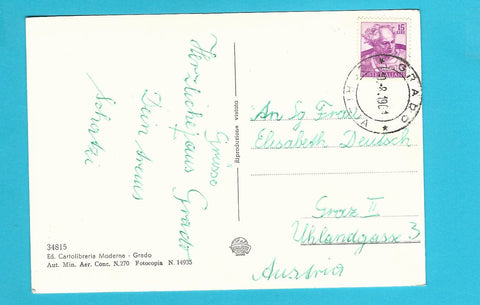 Herzliche Grüsse
aus Grado
Dein
Schatzi
34815
Ed. Cartolibreria Moderna - Grado
Aut. Min. Aer. Conc. N.270 Fotocopia N. 14935
Riproduzione vietata
15
POSTE ITALIANE
GRADO
An Sg Frau
Elisabeth Deutsch
Graz II
Uhlandgasse 3
Austria